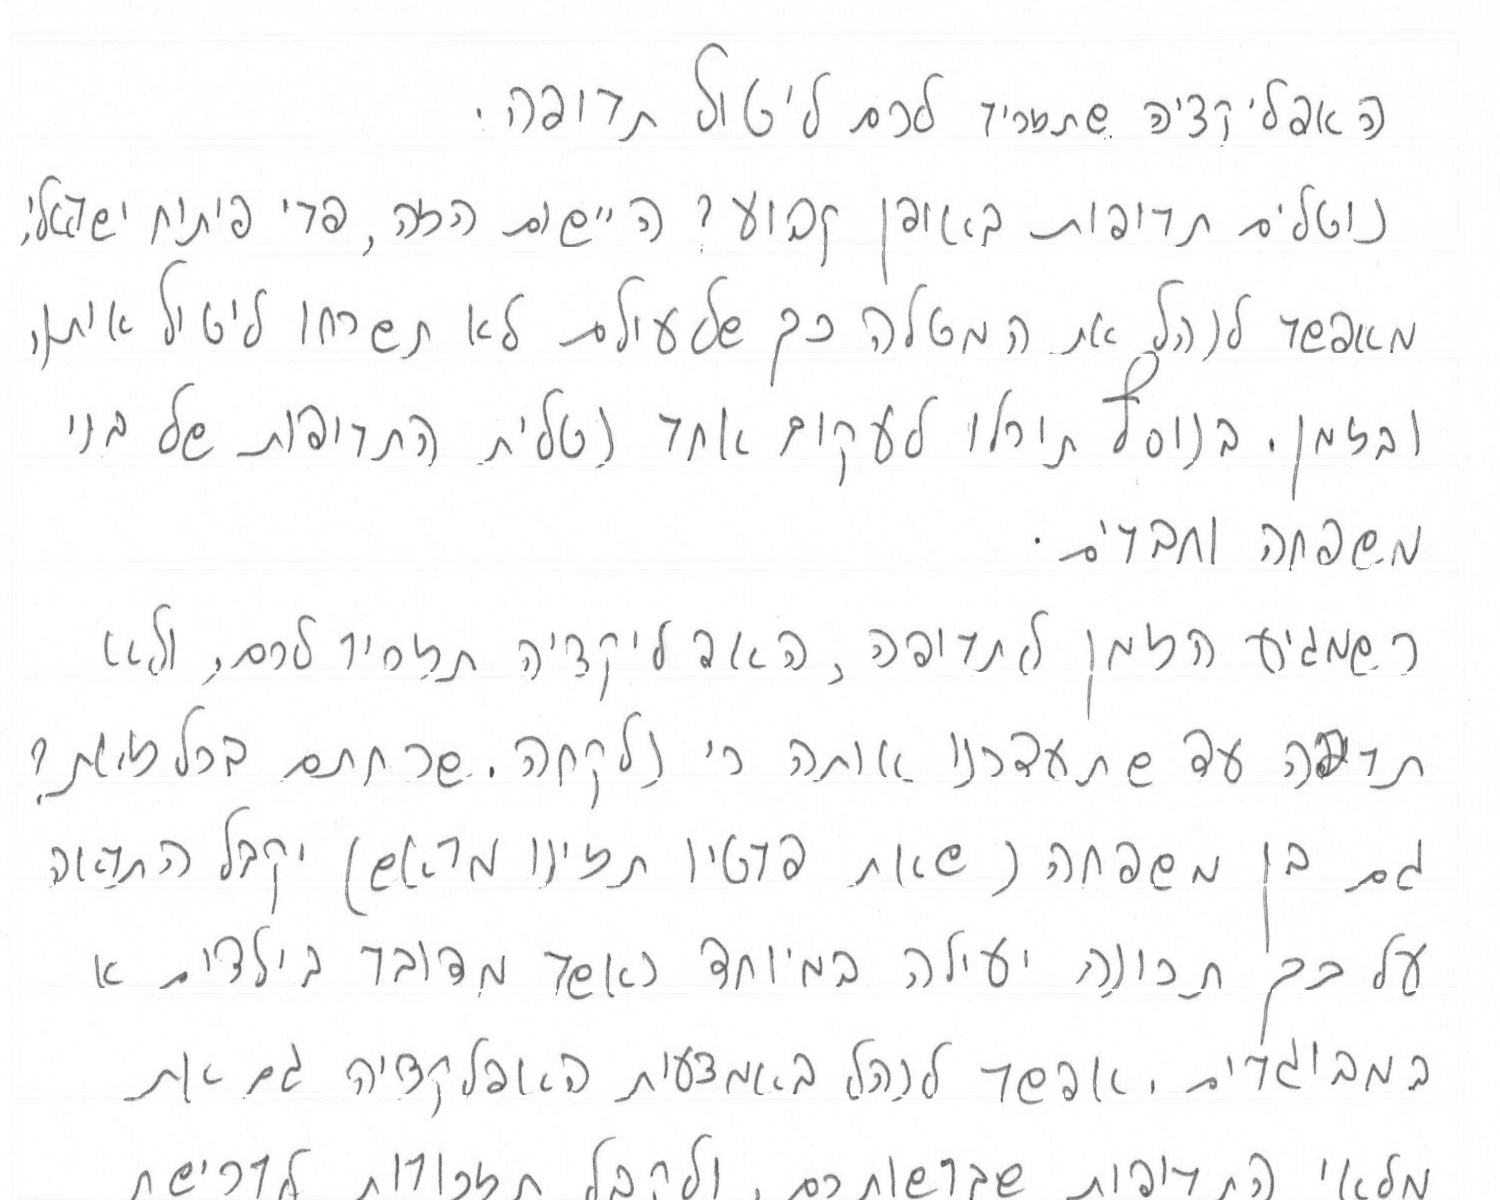 האפליקציה שתזכיר לכם ליטול תרופה.
נוטלים תרופות באופן קבוע? היישום הזה, פרי פיתוח ישראלי,
מאפשר לנהל את המטלה כך שלעולם לא תשכחו ליטול אותן,
ובזמן. בנוסף תוכלו לעקוב אחר נטלית התרופות של בני
משפחה וחברים.
כשמגיע הזמן לתרופה, האפליקציה תזכיר לכם, ולא
תרפה עד שתעדכנו אותה כי נלקחה. שכחתם בכל זאת?
גם בן משפחה (שאת פרטיו תזינו מראש) יקבל התראה
על כך תכונה יעילה במיוחד כאשר מדובר בילדים א
במבוגרים. אפשר לנהל באמצעות האפלקציה גם את
מלאי התרופות שברשותכם, ולקבל תזכורות לרכישת